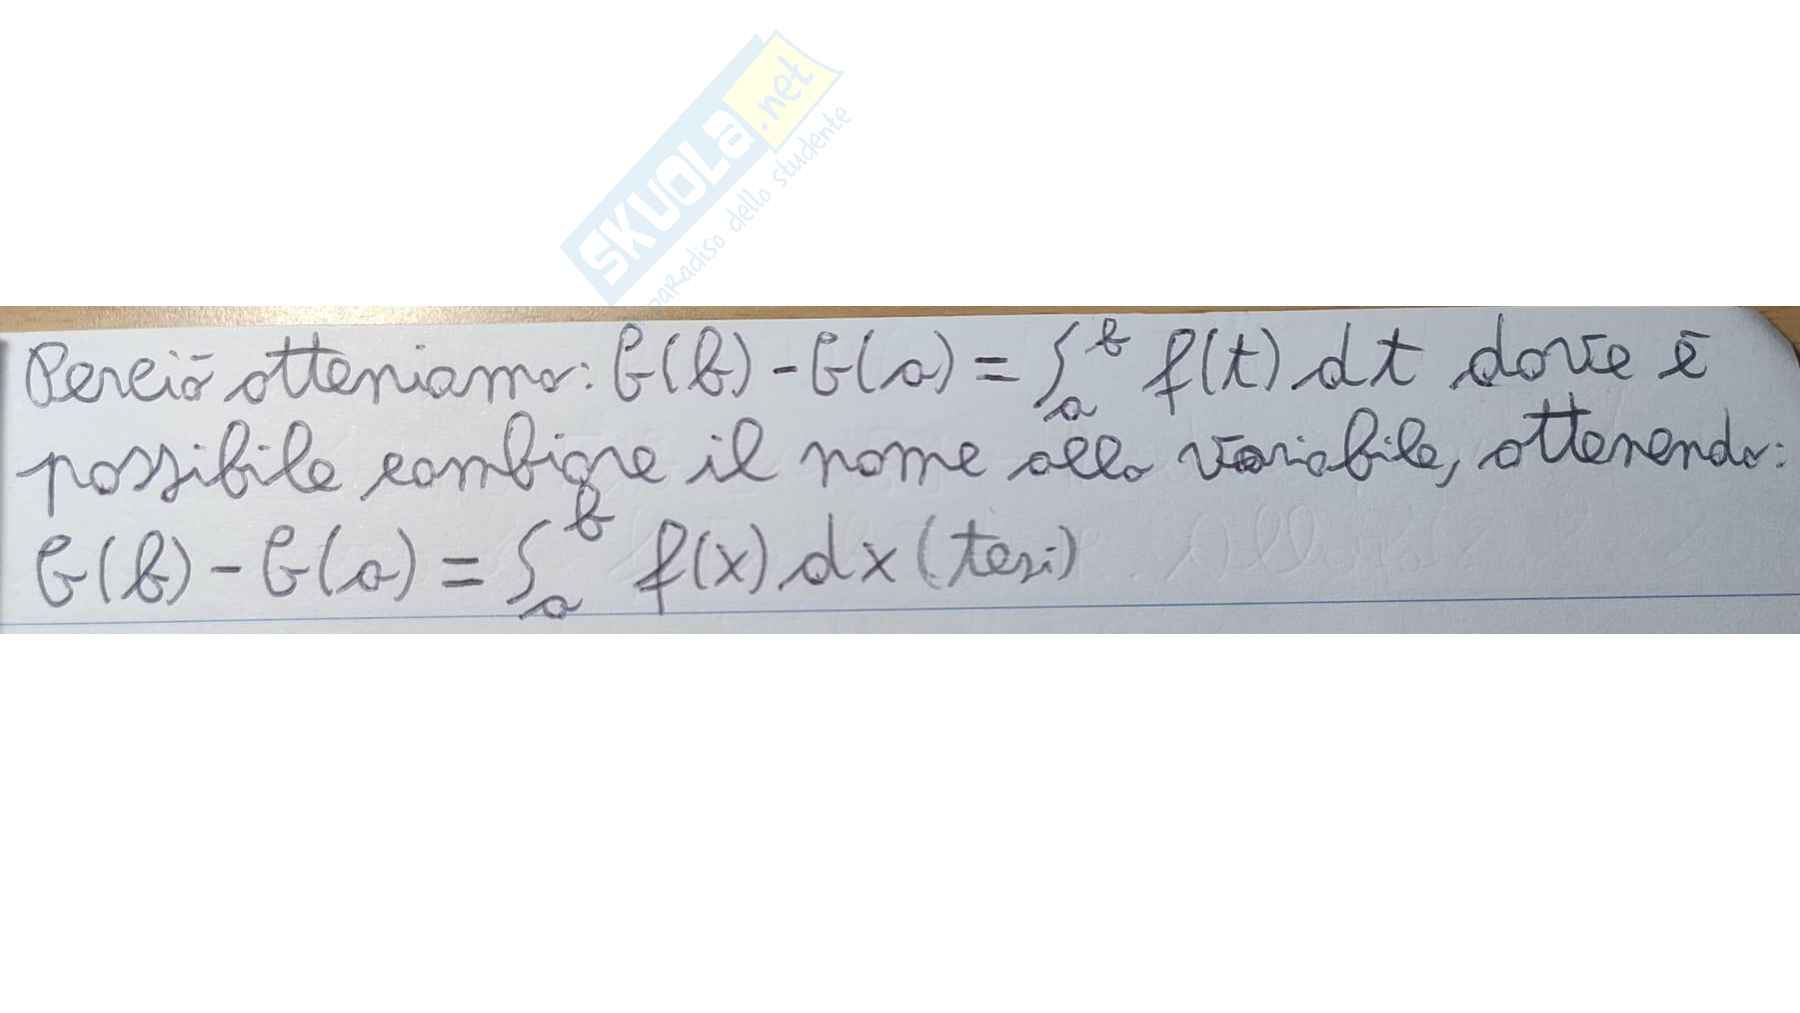 SKUOLA.net
paradiso dello studente
Perciò otteniamo: G(b) - G(a) = ∫ₐᵇ f(t) dt dove è
possibile cambiare il nome alla variabile, ottenendo:
G(b) - G(a) = ∫ₐᵇ f(x) dx (tesi)